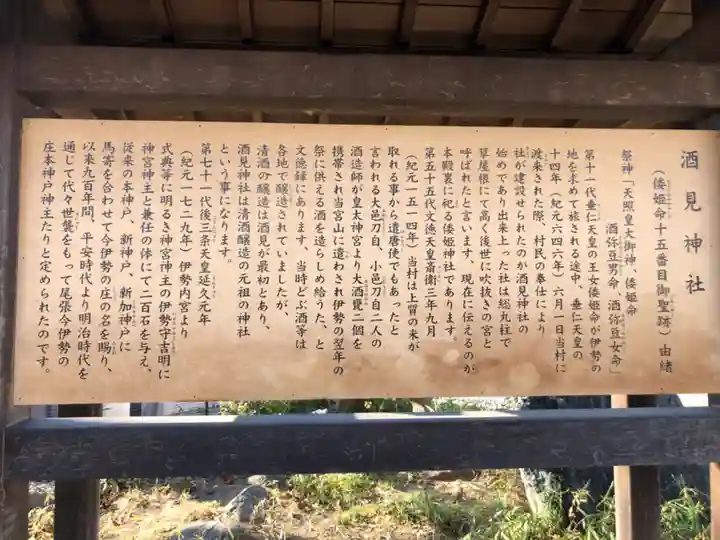 酒見神社
（倭姫命十五番目御聖跡）由緒
祭神「天照皇大御神、倭姫命
酒弥豆男命、酒弥豆女命」
第十一代垂仁天皇の王女倭姫命が伊勢の
地を求めて旅される途中、垂仁天皇の
十四年（紀元六四六年）六月一日当村に
渡来された際、村民の奉仕により
社が建設せられたのが酒見神社の
始めであり出来上った社は総丸柱で
萱屋根にて高く後世に吹抜きの宮と
呼ばれたと言います、現在に伝えるのが
本殿裏に祀る倭姫神社であります。
第五十五代文徳天皇斎衛三年九月
（紀元一五一四年）当村は上質の米が
取れる事から遣唐使でもあったと
言われる大邑刀自、小邑刀自二人の
酒造師が皇太神宮より大酒甕二個を
携帯され当宮山に遣わされ伊勢の翌年の
祭に供える酒を造らしめ給うた、と
文徳録にあります、当時どぶ酒等は
各地で醸造されていましたが、
清酒の醸造は酒見が最初とあり、
酒見神社は清酒醸造の元祖の神社
という事になります。
第七十一代後三条天皇延久元年
（紀元一七二九年）伊勢内宮より
式典等に明るき神宮神主の伊勢守吉明に
神宮神主と兼任の体にて二百石を与え、
従来の本神戸、新神戸、新加神戸に
馬寄を合わせて今伊勢の庄の名を賜り、
以来九百年間、平安時代より明治時代を
通じて代々世襲をもって尾張今伊勢の
庄本神戸神主たりと定められたのです。